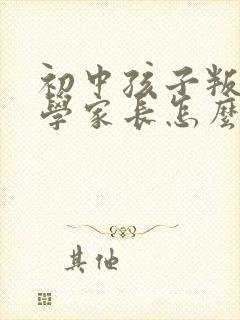 初中孩子叛
學家長怎麼
其他